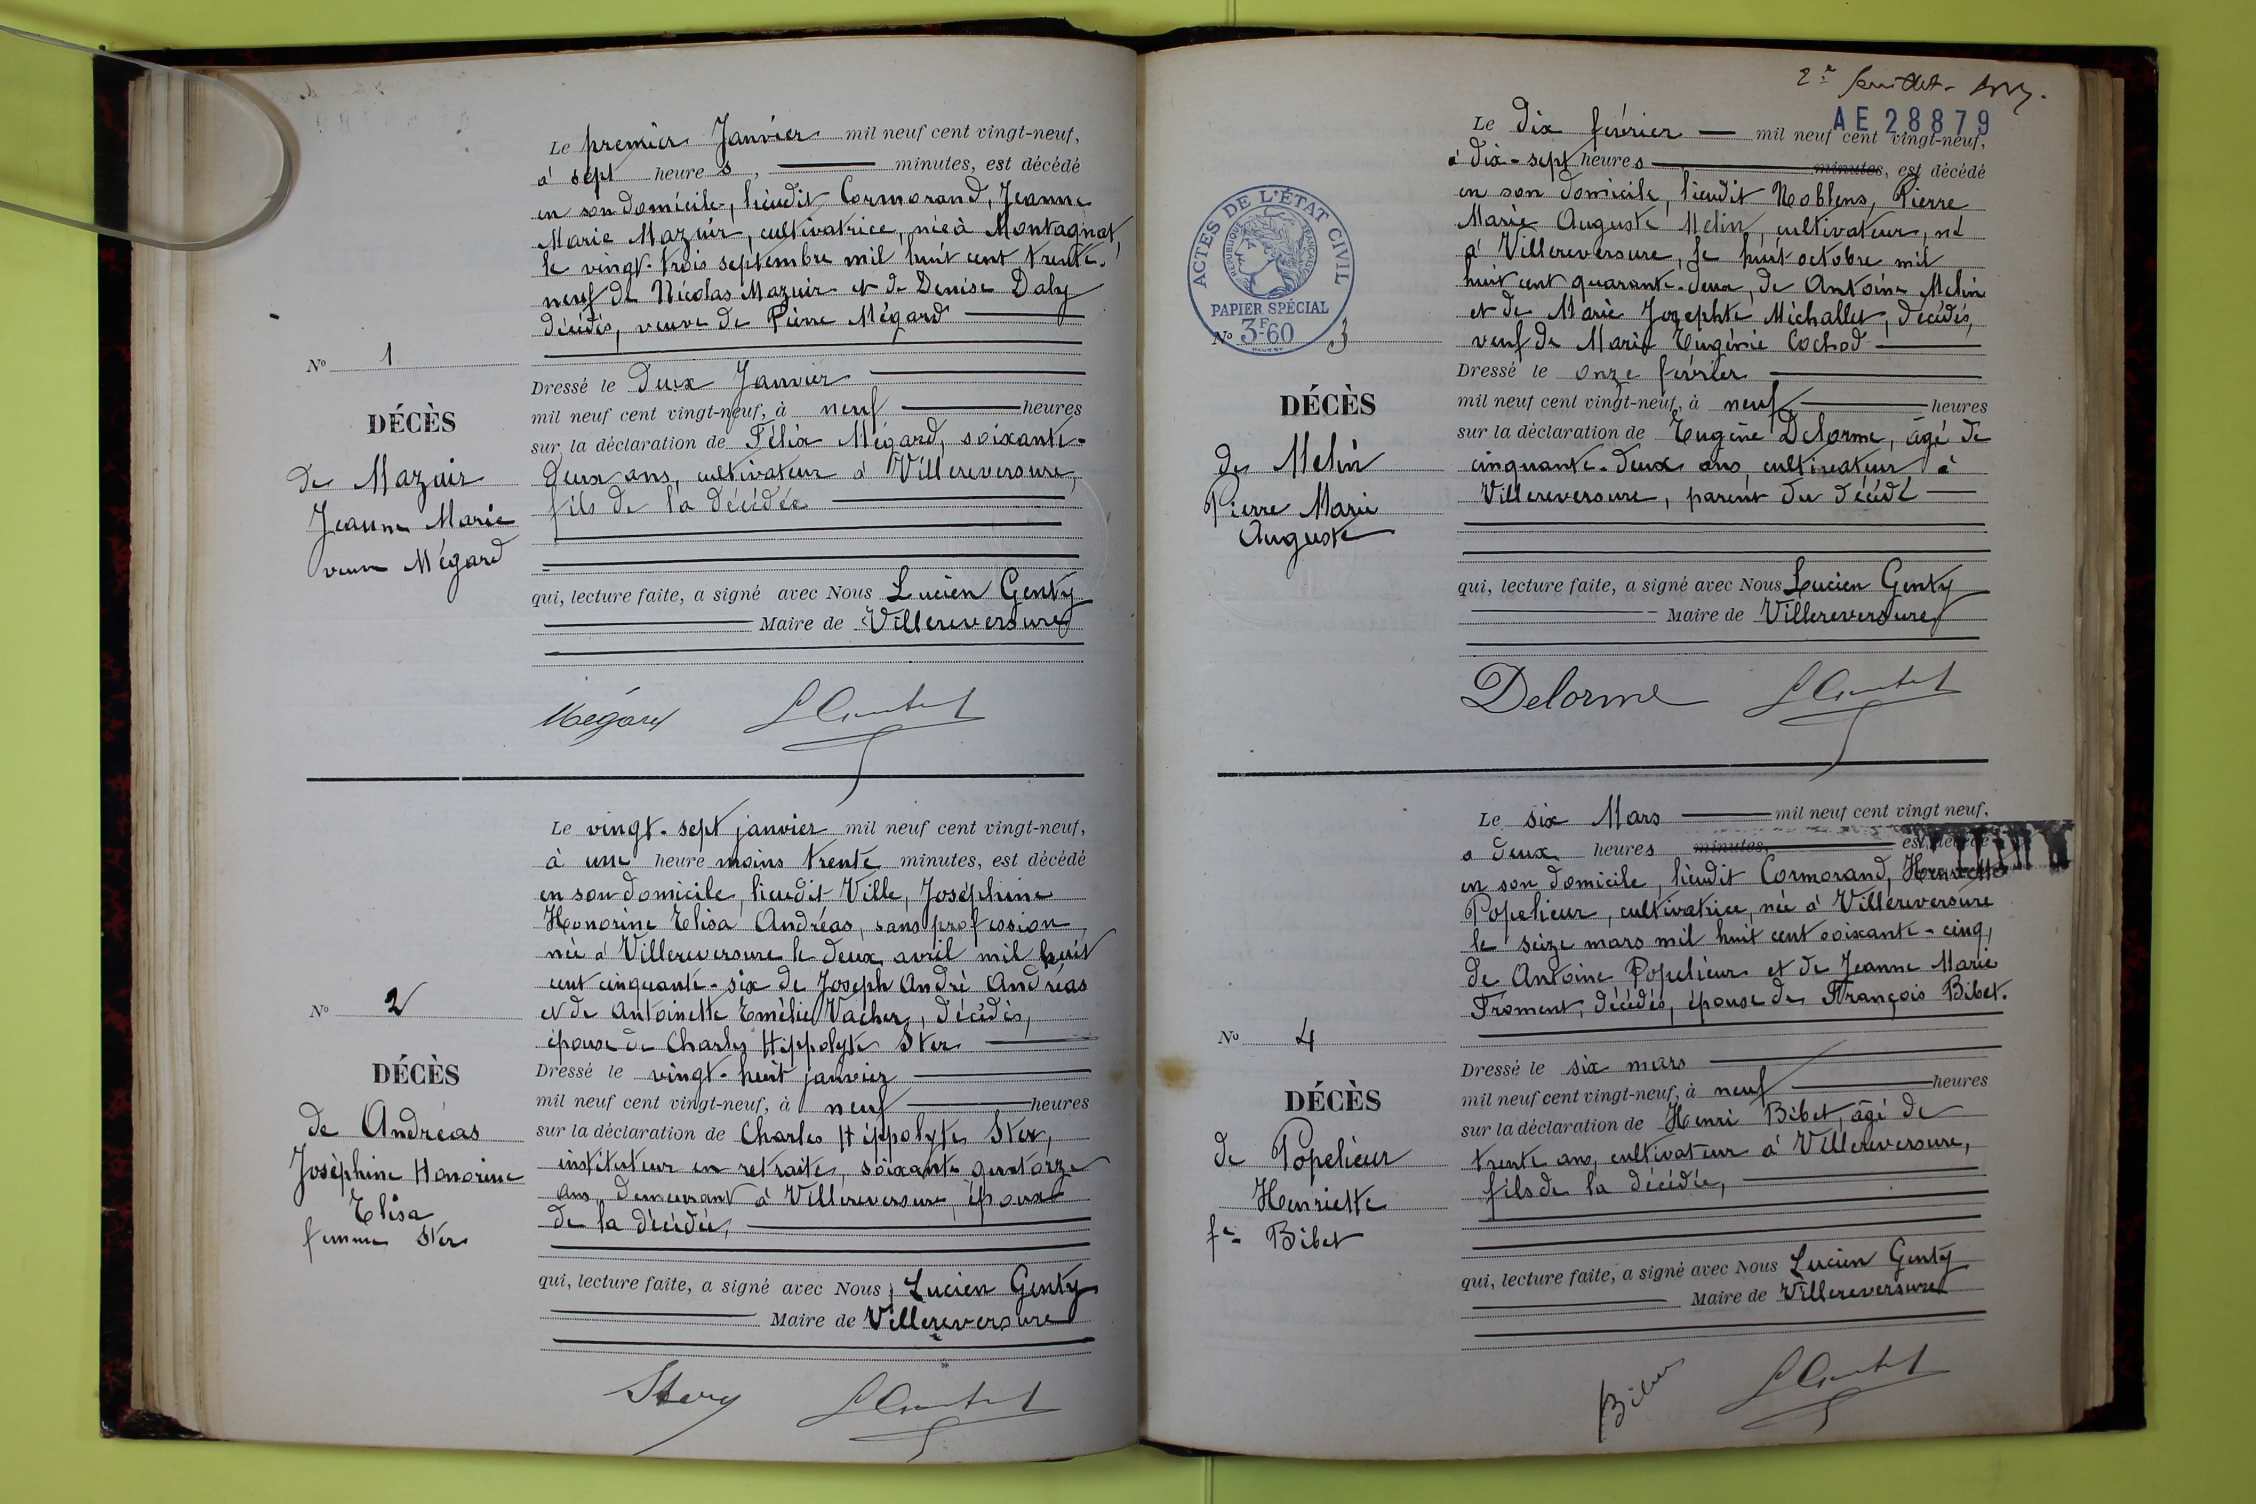 Le premier Janvier mil neuf cent vingt-neuf,
à sept heures, minutes, est décédé
en son domicile, lieudit Cormorand, Jeanne
Marie Mazuir, cultivatrice, née à Montagnat,
le vingt-trois septembre mil huit cent trente-
neuf de Nicolas Mazuir et de Denise Daly
décédés, veuve de Pierre Mégard
No 1
Dressé le deux Janvier
mil neuf cent vingt-neuf, à neuf heures
sur la déclaration de Félix Mégard, soixante-
deux ans, cultivateur à Villereversure,
fils de la décédée
DÉCÈS
de Mazuir
Jeanne Marie
veuve Mégard
qui, lecture faite, a signé avec Nous Lucien Genty
Maire de Villereversure
Mégard
Le vingt-sept janvier mil neuf cent vingt-neuf,
à une heure moins trente minutes, est décédé
en son domicile, lieudit Ville, Joséphine
Honorine Elisa Andréas, sans profession,
née à Villereversure le deux avril mil huit
cent cinquante-six de Joseph André Andréas
et de Antoinette Emélie Vacher, décédés,
épouse de Charles Hippolyte Ster
No 2
Dressé le vingt-huit janvier
mil neuf cent vingt-neuf, à neuf heures
sur la déclaration de Charles Hippolyte Ster,
instituteur en retraite, soixante quatorze
ans, demeurant à Villereversure, époux
de la décédée,
DÉCÈS
de Andréas
Joséphine Honorine
Elisa
femme Ster
qui, lecture faite, a signé avec Nous, Lucien Genty
Maire de Villereversure
Ster
AE 28879
Le dix février mil neuf cent vingt-neuf,
à dix-sept heures minutes, est décédé
en son domicile, lieudit Noblens, Pierre
Marie Auguste Melin, cultivateur, né
à Villereversure, le huit octobre mil
huit cent quarante-deux, de Antoine Melin
et de Marie Josephte Michallet, décédés,
veuf de Marie Eugénie Cochod
ACTES DE L'ÉTAT CIVIL
RÉPUBLIQUE FRANÇAISE
PAPIER SPÉCIAL
3F60
No 3
Dressé le onze février
mil neuf cent vingt-neuf, à neuf heures
sur la déclaration de Eugène Delorme, âgé de
cinquante-deux ans, cultivateur à
Villereversure, parent du décédé
DÉCÈS
de Melin
Pierre Marie
Auguste
qui, lecture faite, a signé avec Nous Lucien Genty
Maire de Villereversure
Delorme
Le six Mars mil neuf cent vingt neuf,
à deux heures minutes, est décédé
en son domicile, lieudit Cormorand, Henriette
Popelieur, cultivatrice, née à Villereversure
le seize mars mil huit cent soixante-cinq,
de Antoine Popelieur et de Jeanne Marie
Froment, décédés, épouse de François Bibet.
No 4
Dressé le six mars
mil neuf cent vingt-neuf, à neuf heures
sur la déclaration de Henri Bibet, âgé de
trente ans, cultivateur à Villereversure,
fils de la décédée,
DÉCÈS
de Popelieur
Henriette
fe Bibet
qui, lecture faite, a signé avec Nous Lucien Genty
Maire de Villereversure
Bibet